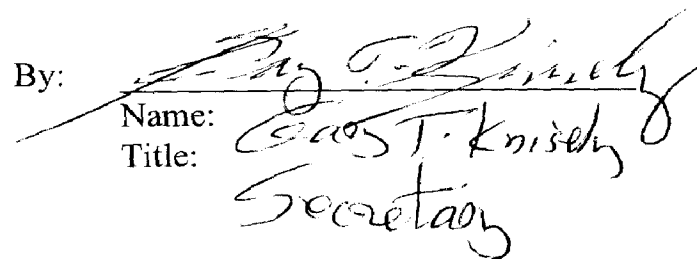 By: Gary T. Knisely
Name: Gary T. Knisely
Title:
Secretary